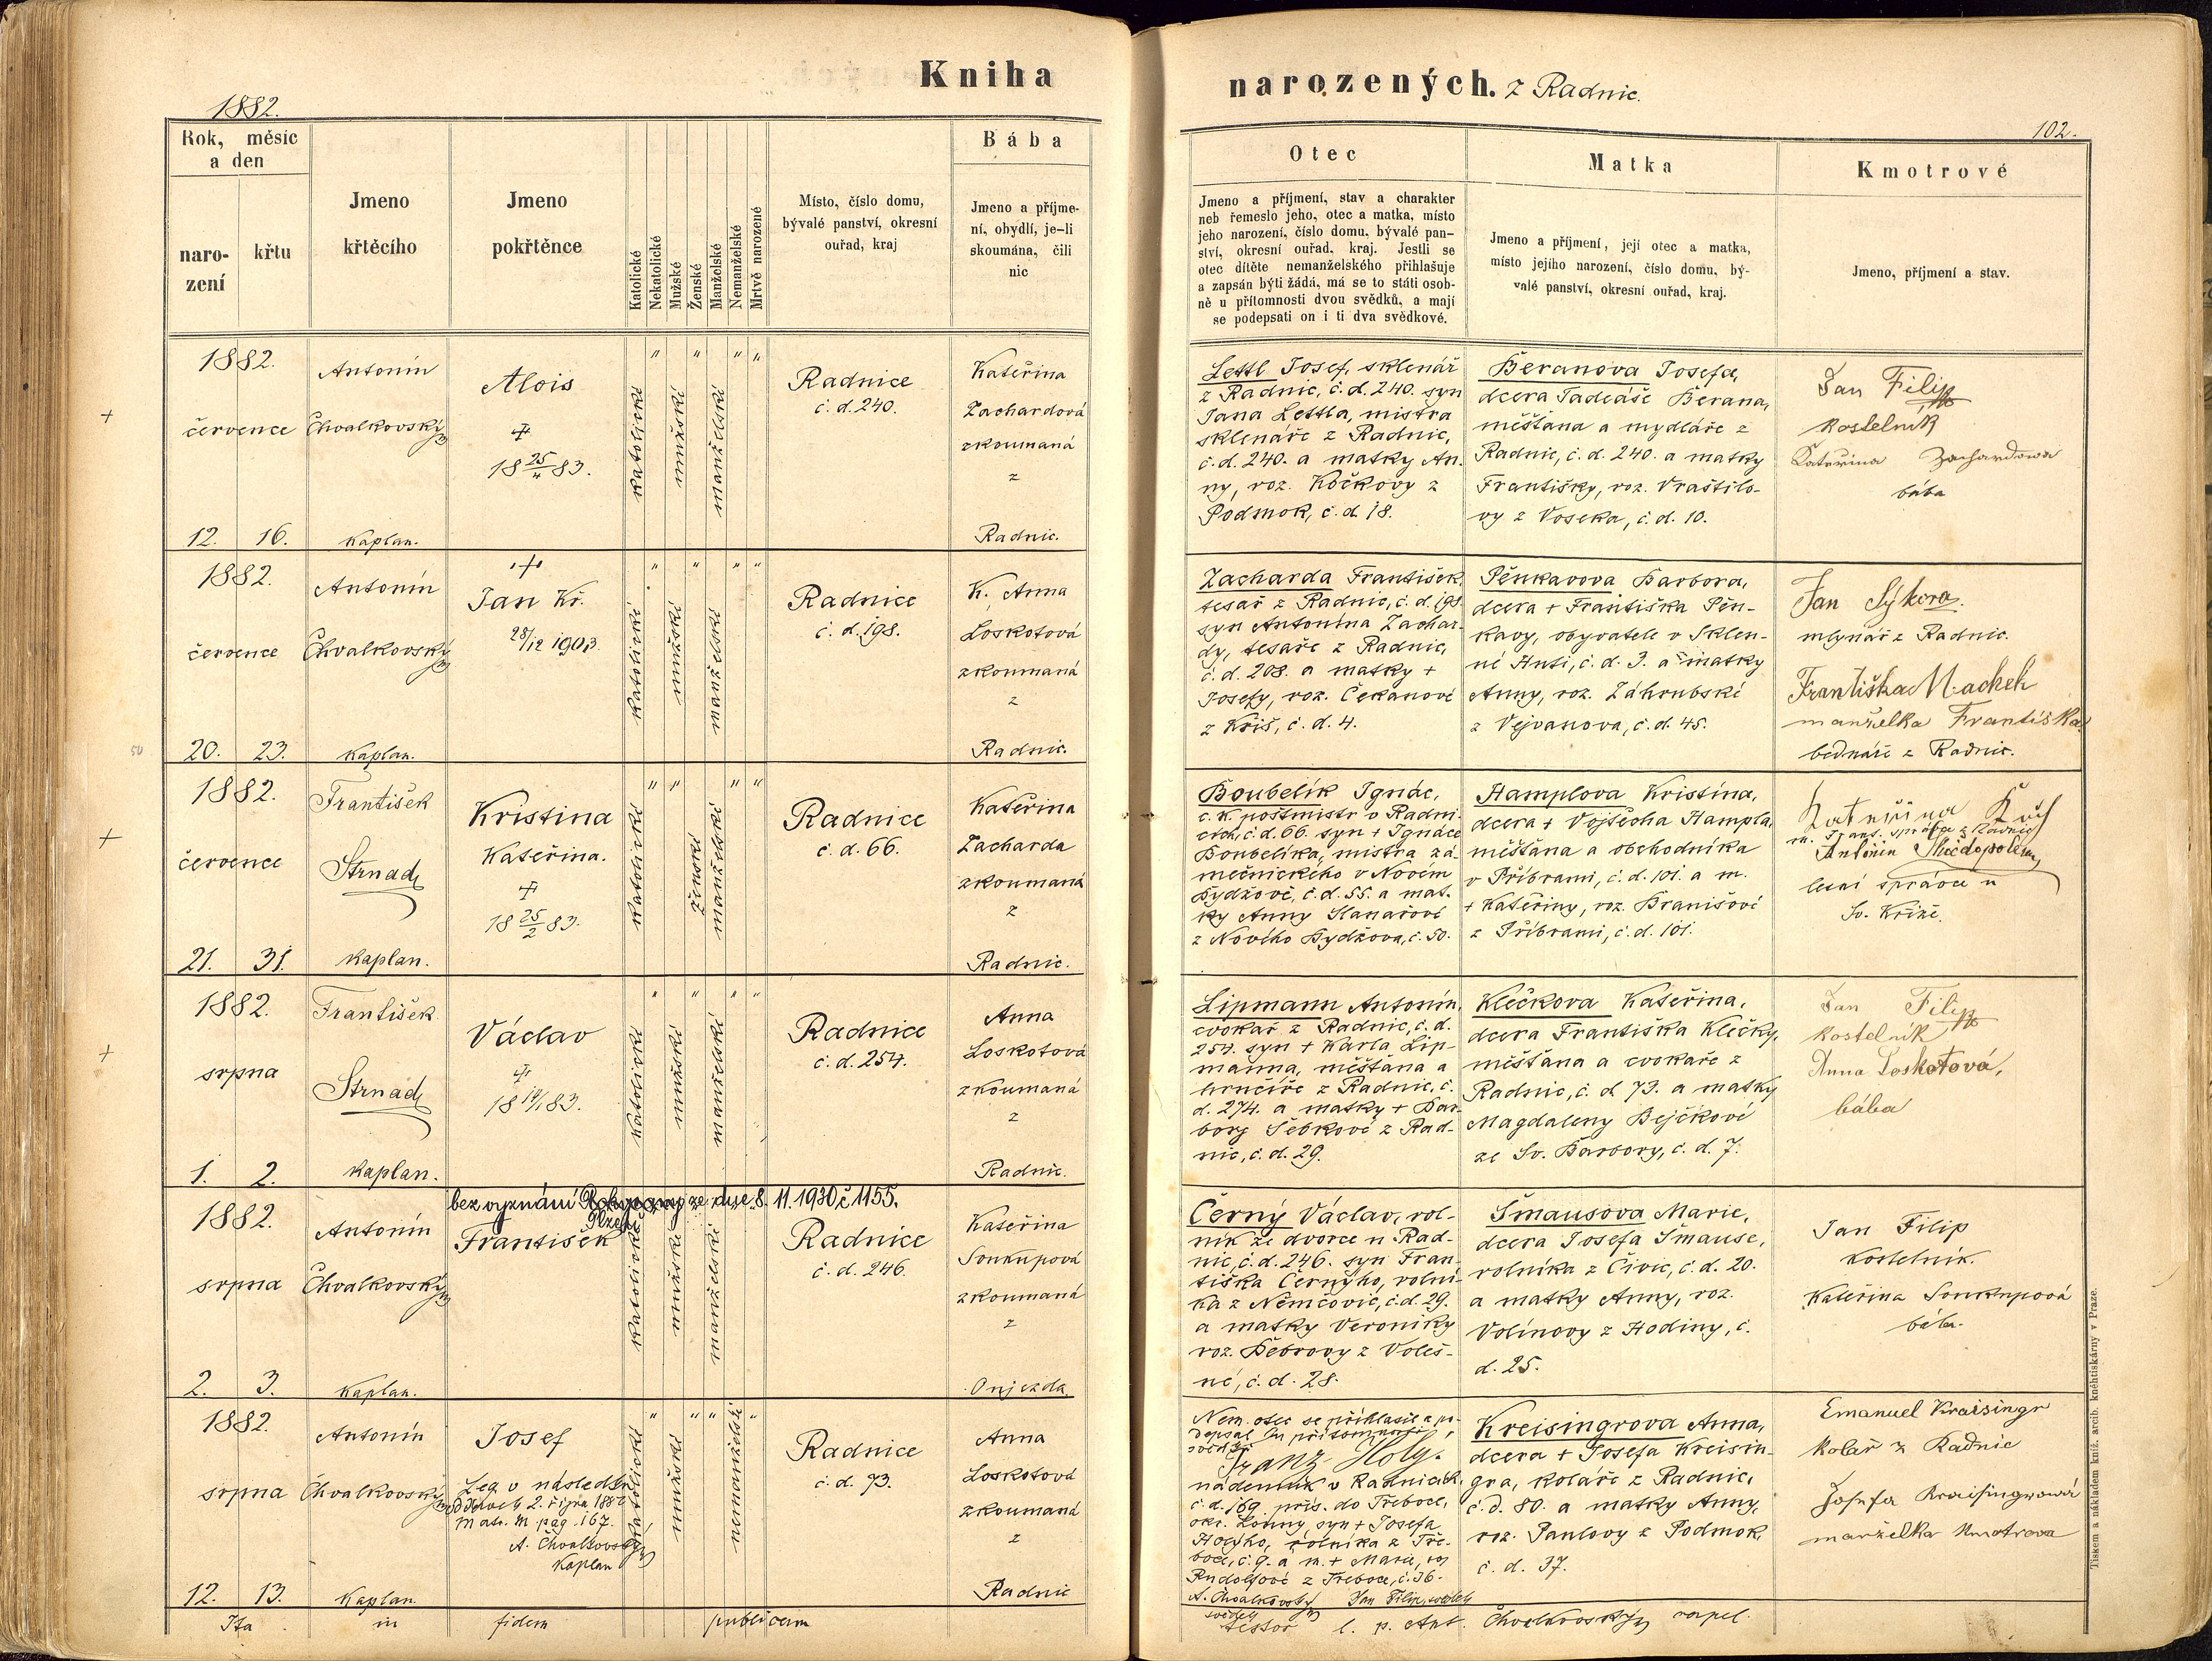 Kniha
narozených. z Radnic.
1882.
102.
Rok, měsíc
a den
naro-
zení
křtu
Jmeno
křtěcího
Jmeno
pokřtěnce
Katolické
Nekatolické
Mužské
Ženské
Manželské
Nemanželské
Mrtvě narozené
Místo, číslo domu,
bývalé panství, okresní
ouřad, kraj
Bába
Jmeno a příjme-
ní, obydlí, je-li
skoumána, čili
nic
Otec
Jmeno a příjmení, stav a charakter
neb řemeslo jeho, otec a matka, místo
jeho narození, číslo domu, bývalé pan-
ství, okresní ouřad, kraj. Jestli se
otec dítěte nemanželského přihlašuje
a zapsán býti žádá, má se to státi osob-
ně u přítomnosti dvou svědků, a mají
se podepsati on i ti dva svědkové.
Matka
Jmeno a příjmení, její otec a matka,
místo jejího narození, číslo domu, bý-
valé panství, okresní ouřad, kraj.
Kmotrové
Jmeno, příjmení a stav.
1882.
července
12. 16.
Antonín
Chvalkovský
kaplan.
Alois
18 25/11 83.
katolické
mužské
manželské
Radnice
č. d. 240.
Kateřina
Zachardová
zkoumaná
z
Radnic.
Lettl Josef, sklenář
z Radnic, č. d. 240. syn
Jana Lettla, mistra
sklenáře z Radnic,
č. d. 240. a matky An-
ny, roz. Kočkovy z
Podmok, č. d. 18.
Beranova Josefa,
dcera Tadeáše Berana,
měšťana a mydláře z
Radnic, č. d. 240. a matky
Františky, roz. Vraštilo-
vy z Voseka, č. d. 10.
Jan Filip
kostelník
Kateřina Zachardowa
bába
1882.
července
20. 23.
Antonín
Chvalkovský
kaplan.
Jan Kř.
28/12 1903.
katolické
mužské
manželské
Radnice
č. d. 198.
K. Anna
Loskotová
zkoumaná
z
Radnic.
Zacharda František,
tesař z Radnic, č. d. 198.
syn Antonína Zachar-
dy, tesaře z Radnic,
č. d. 208. a matky +
Josefy, roz. Čekanové
z Kříš, č. d. 4.
Pěnkavova Barbora,
dcera + Františka Pěn-
kavy, obyvatele v Sklen-
né Huti, č. d. 3. a matky
Anny, roz. Záhrubské
z Vejvanova, č. d. 45.
Jan Sýkora.
mlynář z Radnic.
Františka Machek
manželka Františka
bednáře z Radnic.
50
1882.
července
21. 31.
František
Strnad
kaplan.
Kristina
Kateřina.
18 25/2 83.
katolické
ženské
manželské
Radnice
č. d. 66.
Kateřina
Zacharda
zkoumaná
z
Radnic.
Boubelík Ignác,
c. k. poštmistr v Radni-
cích, č. d. 66. syn + Ignáce
Boubelíka, mistra zá-
mečnického v Novém
Bydžově, č. d. 55. a mat-
ky Anny Kanařové
z Nového Bydžova, č. 50.
Hamplova Kristina,
dcera + Vojtěcha Hampla,
měšťana a obchodníka
v Příbrami, č. d. 101. a m.
+ Kateřiny, roz. Branišové
z Příbrami, č. d. 101.
Kateřina
m. Frant. správce z Radnic
Antonín
lesní správce u
Sv. Kříže.
1882.
srpna
1. 2.
František
Strnad
kaplan.
Václav
18 14/1 83.
katolické
mužské
manželské
Radnice
č. d. 254.
Anna
Loskotová
zkoumaná
z
Radnic.
Lipmann Antonín,
cvokař z Radnic, č. d.
254. syn + Karla Lip-
manna, měšťana a
hrnčíře z Radnic, č.
d. 274. a matky + Bar-
bory Šebkové z Rad-
nic, č. d. 29.
Klečkova Kateřina,
dcera Františka Klečky,
měšťana a cvokaře z
Radnic, č. d. 73. a matky
Magdaleny Bejčkové
ze Sv. Barbory, č. d. 7.
Jan Filip
kostelník
Anna Loskotová,
bába
1882.
srpna
2. 3.
Antonín
Chvalkovský
kaplan.
bez vyznání ze dne 8. 11. 1930 č 1155.
František
katolické
mužské
manželské
Radnice
č. d. 246.
Kateřina
Soukupová
zkoumaná
z
Oujezda
Černý Václav, rol-
ník ze dvorce u Rad-
nic, č. d. 246. syn Fran-
tiška Černýho, rolní-
ka z Němčovic, č. d. 29.
a matky Veroniky
roz. Bebrovy z Voleš-
né, č. d. 28.
Šmausova Marie,
dcera Josefa Šmause,
rolníka z Čivic, č. d. 20.
a matky Anny, roz.
Volínovy z Hodiny, č.
d. 25.
Jan Filip
kostelník.
Kateřina Soukupová
bába.
1882.
srpna
12. 13.
Antonín
Chvalkovský
kaplan.
Josef
Leg. v následku
oddavek 2. října 1882
Matr. M. pag. 167.
A. Chvalkovský
kaplan
katolické
mužské
nemanželské
Radnice
č. d. 73.
Anna
Loskotová
zkoumaná
z
Radnic
Nem. otec se přihlásil a po-
depsal u přítomnosti
svědků
Franz Holy.
nádenník v Radnicích,
č. d. 169. přís. do Třeboce,
okr. Louny, syn + Josefa
Holýho, rolníka z Tře-
boce, č. 9. a m. + Marie, roz
Rudolfové z Třeboce, č. 36.
A. Chvalkovský Jan Filip, svědek
svědek
Kreisingrova Anna,
dcera + Josefa Kreisin-
gra, koláře z Radnic,
č. d. 80. a matky Anny,
roz. Paulovy z Podmok,
č. d. 37.
Emanuel Kraisingr
kolář z Radnic
Josefa Kraisingrová
manželka kmotrova
Ita in fidem publicam
testor l. p. Ant. Chvalkovský, capel.
Tiskem a nákladem kníž. arcib. kněhtiskárny v Praze.